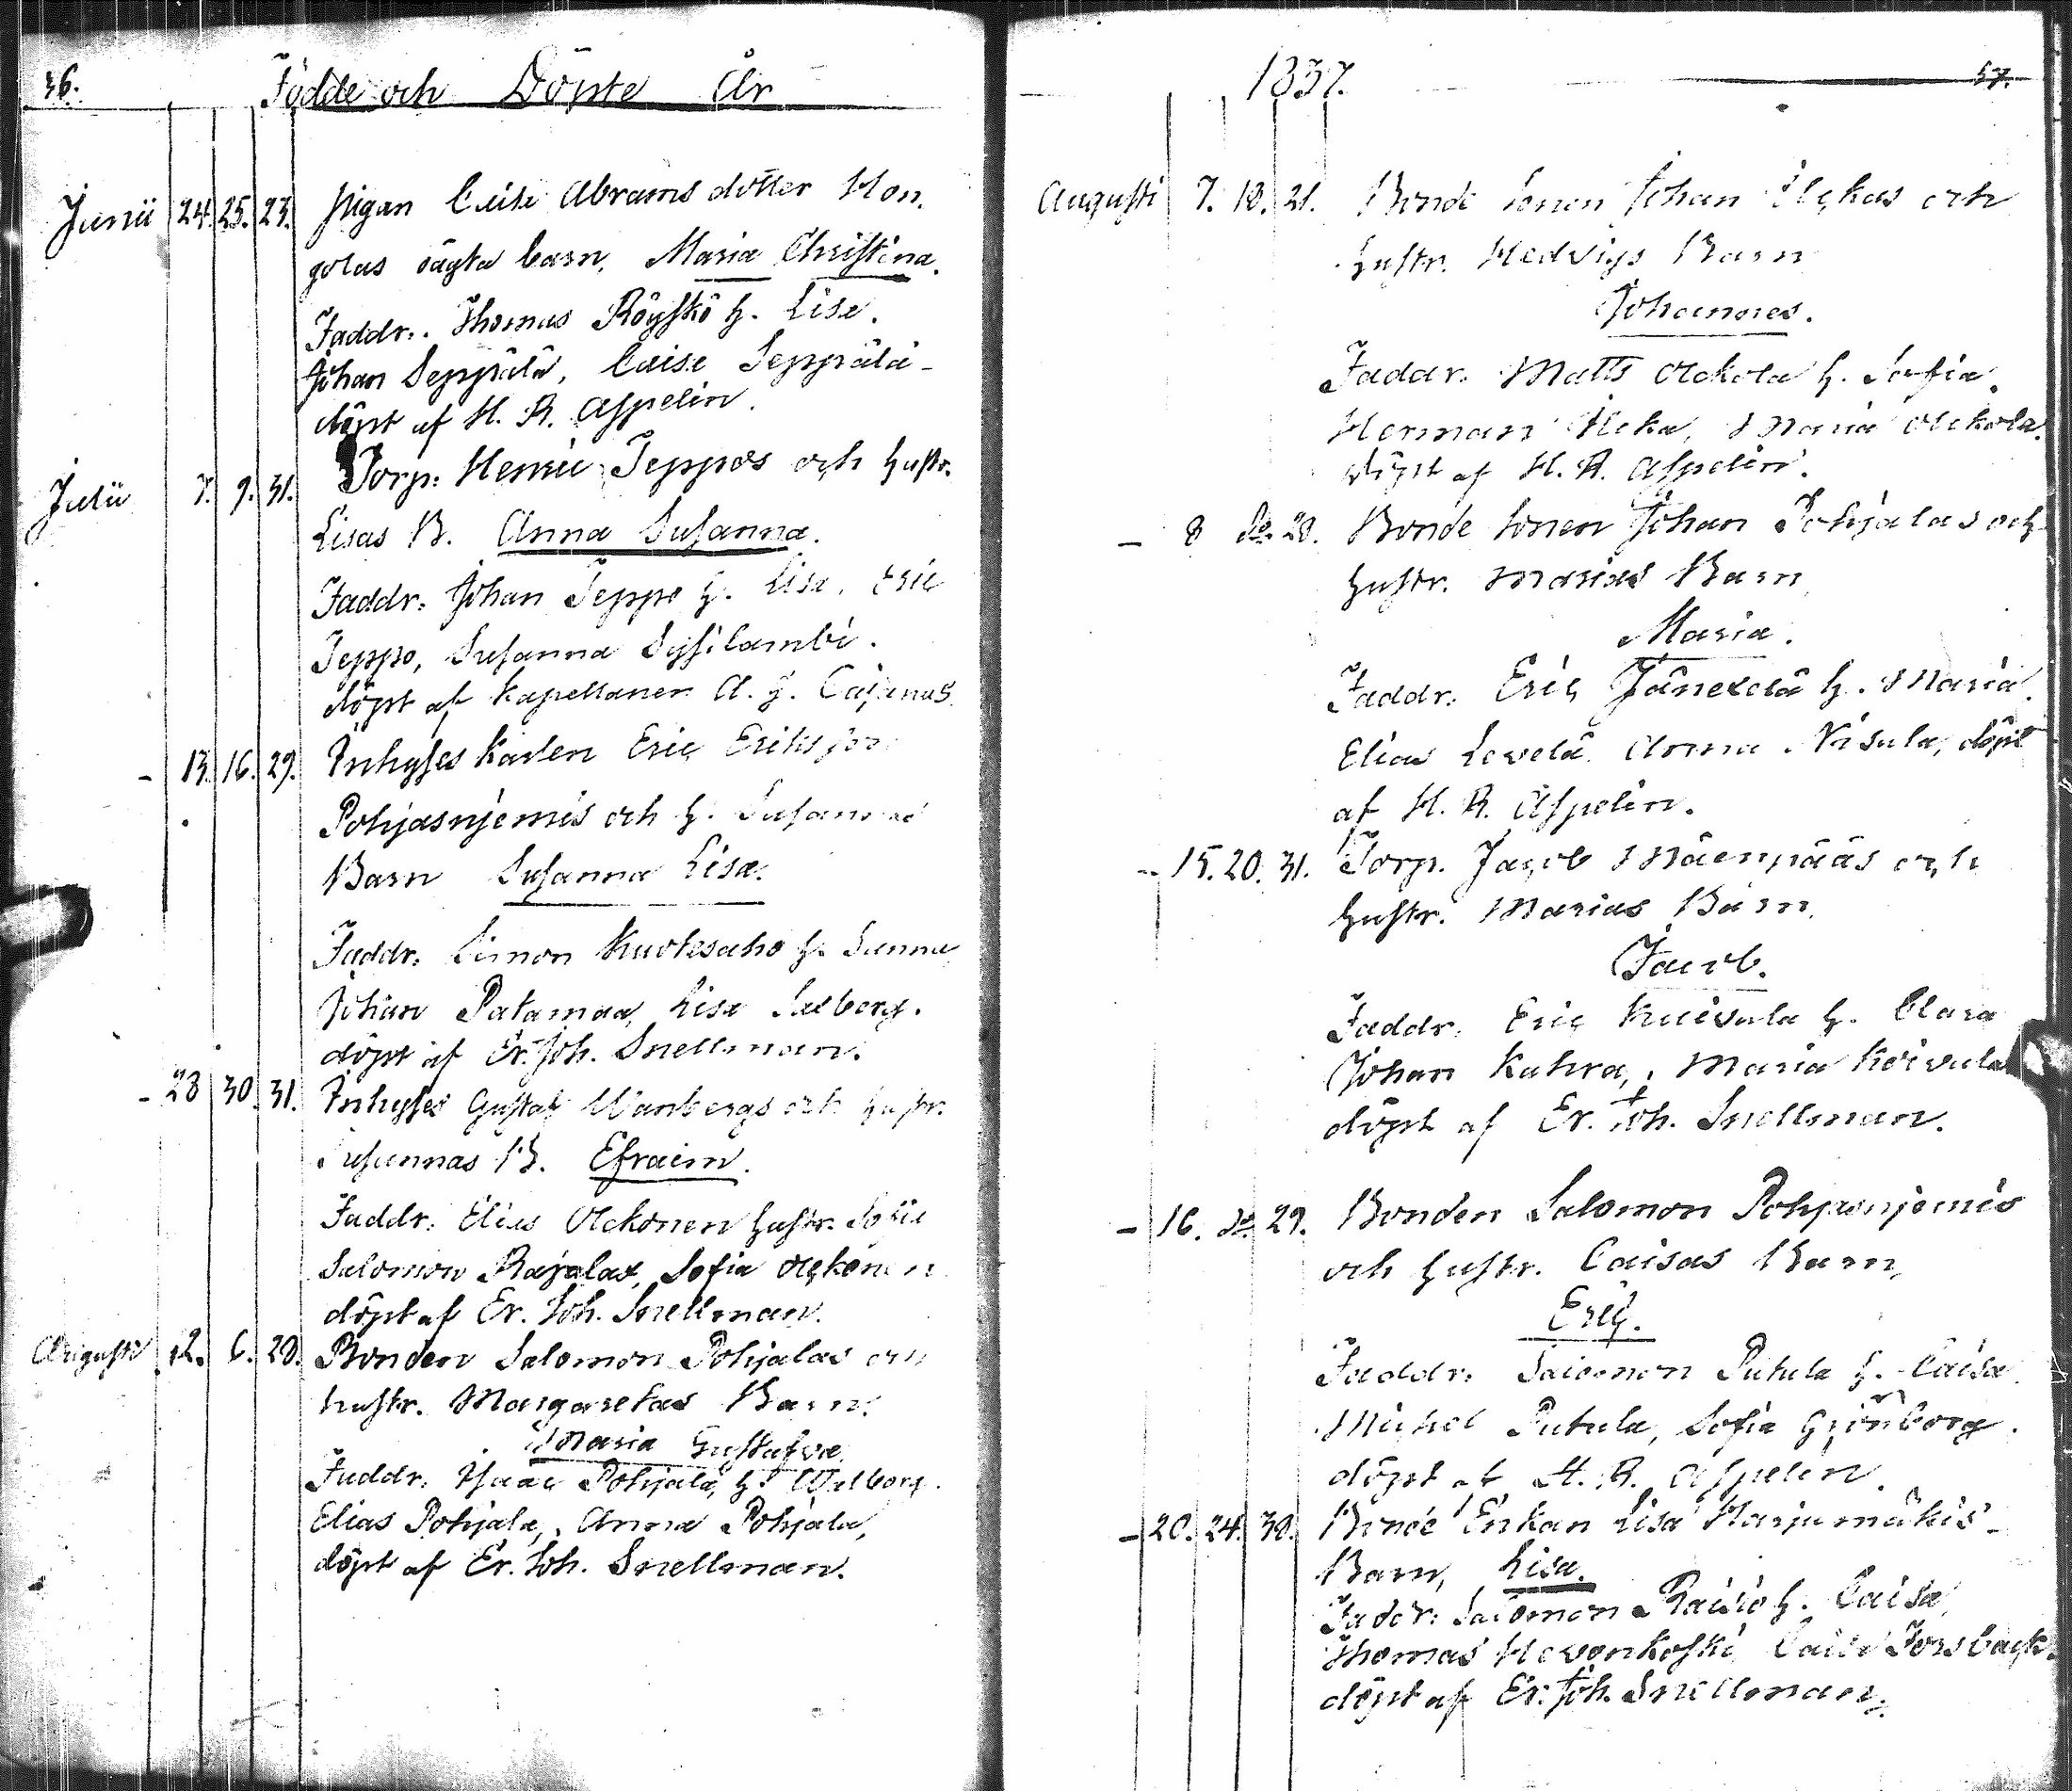 36.
Födde och Döpte År
Junii 24. 25. 23. Pigan Caisa Abrams dotter Hon,
golas oägta barn, Maria Christina.
Faddr. Thomas Röyskö h. Lisa.
Johan Seppälä, Caisa Seppälä
döpt af H. R. Aspelin.
Julii 7. 9. 31. Torp. Henric Jeppos och hustr.
Lisas B. Anna Susanna.
Faddr. Johan Jeppo h. Lisa, Eric
Jeppo, Susanna Sysilambi.
döpt af Kapellanen A. G. Cajanus
- 13. 16. 29. Inhyses Karlen Eric Eriksson
Pohjasnjemis och h. Susannas
Barn Susanna Lisa.
Faddr. Simon Kuokesaho h. Sanna
Johan Patamaa, Lisa Salberg.
döpt af Er. Joh. Snellman.
- 28 30. 31. Inhyses Gustaf Wanbergs och hustr.
Susannas B. Efraim.
Faddr. Elias Olckonen hustr. Sofia
Salomon Rajalax, Sofia Olckonen
döpt af Er. Joh. Snellman.
Augusti 2. 6. 28. Bonden Salomon Pohjalas och
hustr. Margaretas Barn.
Maria Gustafva
Faddr. Isaac Pohjala, h. Walborg.
Elias Pohjala, Anna Pohjala,
döpt af Er. Joh. Snellman.
1837.
37.
Augusti 7. 18. 21. Bonde Sonen Johan Ilckas och
hustr. Hedvigs Barn
Johannes.
Faddr. Matts Olckola h. Sofia.
Herman Ilcka, Maria Olckola.
döpt af H. R. Aspelin.
- 8 do. 28. Bonde Sonen Johan Pohjalas och
hustr. Marias Barn
Maria.
Faddr. Eric Jänexelä h. Maria.
Elias Levelä Anna Nisula, döpt
af H. R. Aspelin.
- 15. 20. 31. Torp. Jacob Mäenpääs och
hustr. Marias Barn.
Jacob.
Faddr. Eric Kuivala h. Clara
Johan Kahra, Maria Koivula
döpt af Er. Joh. Snellman.
- 16. do. 29. Bonden Salomon Pohjasnjemis
och hustr. Caisas Barn,
Eric.
Faddr. Salomon Putula h. Caisa
Michel Putula, Sofia Grönborg.
döpt af H. R. Aspelin.
- 20. 24. 38. Bonde Enkan Lisa Harjumäkis
Barn, Lisa.
Faddr. Salomon Raisio h. Caisa,
Thomas Hevonkoski Caisa Forsback.
döpt af Er. Joh. Snellman.